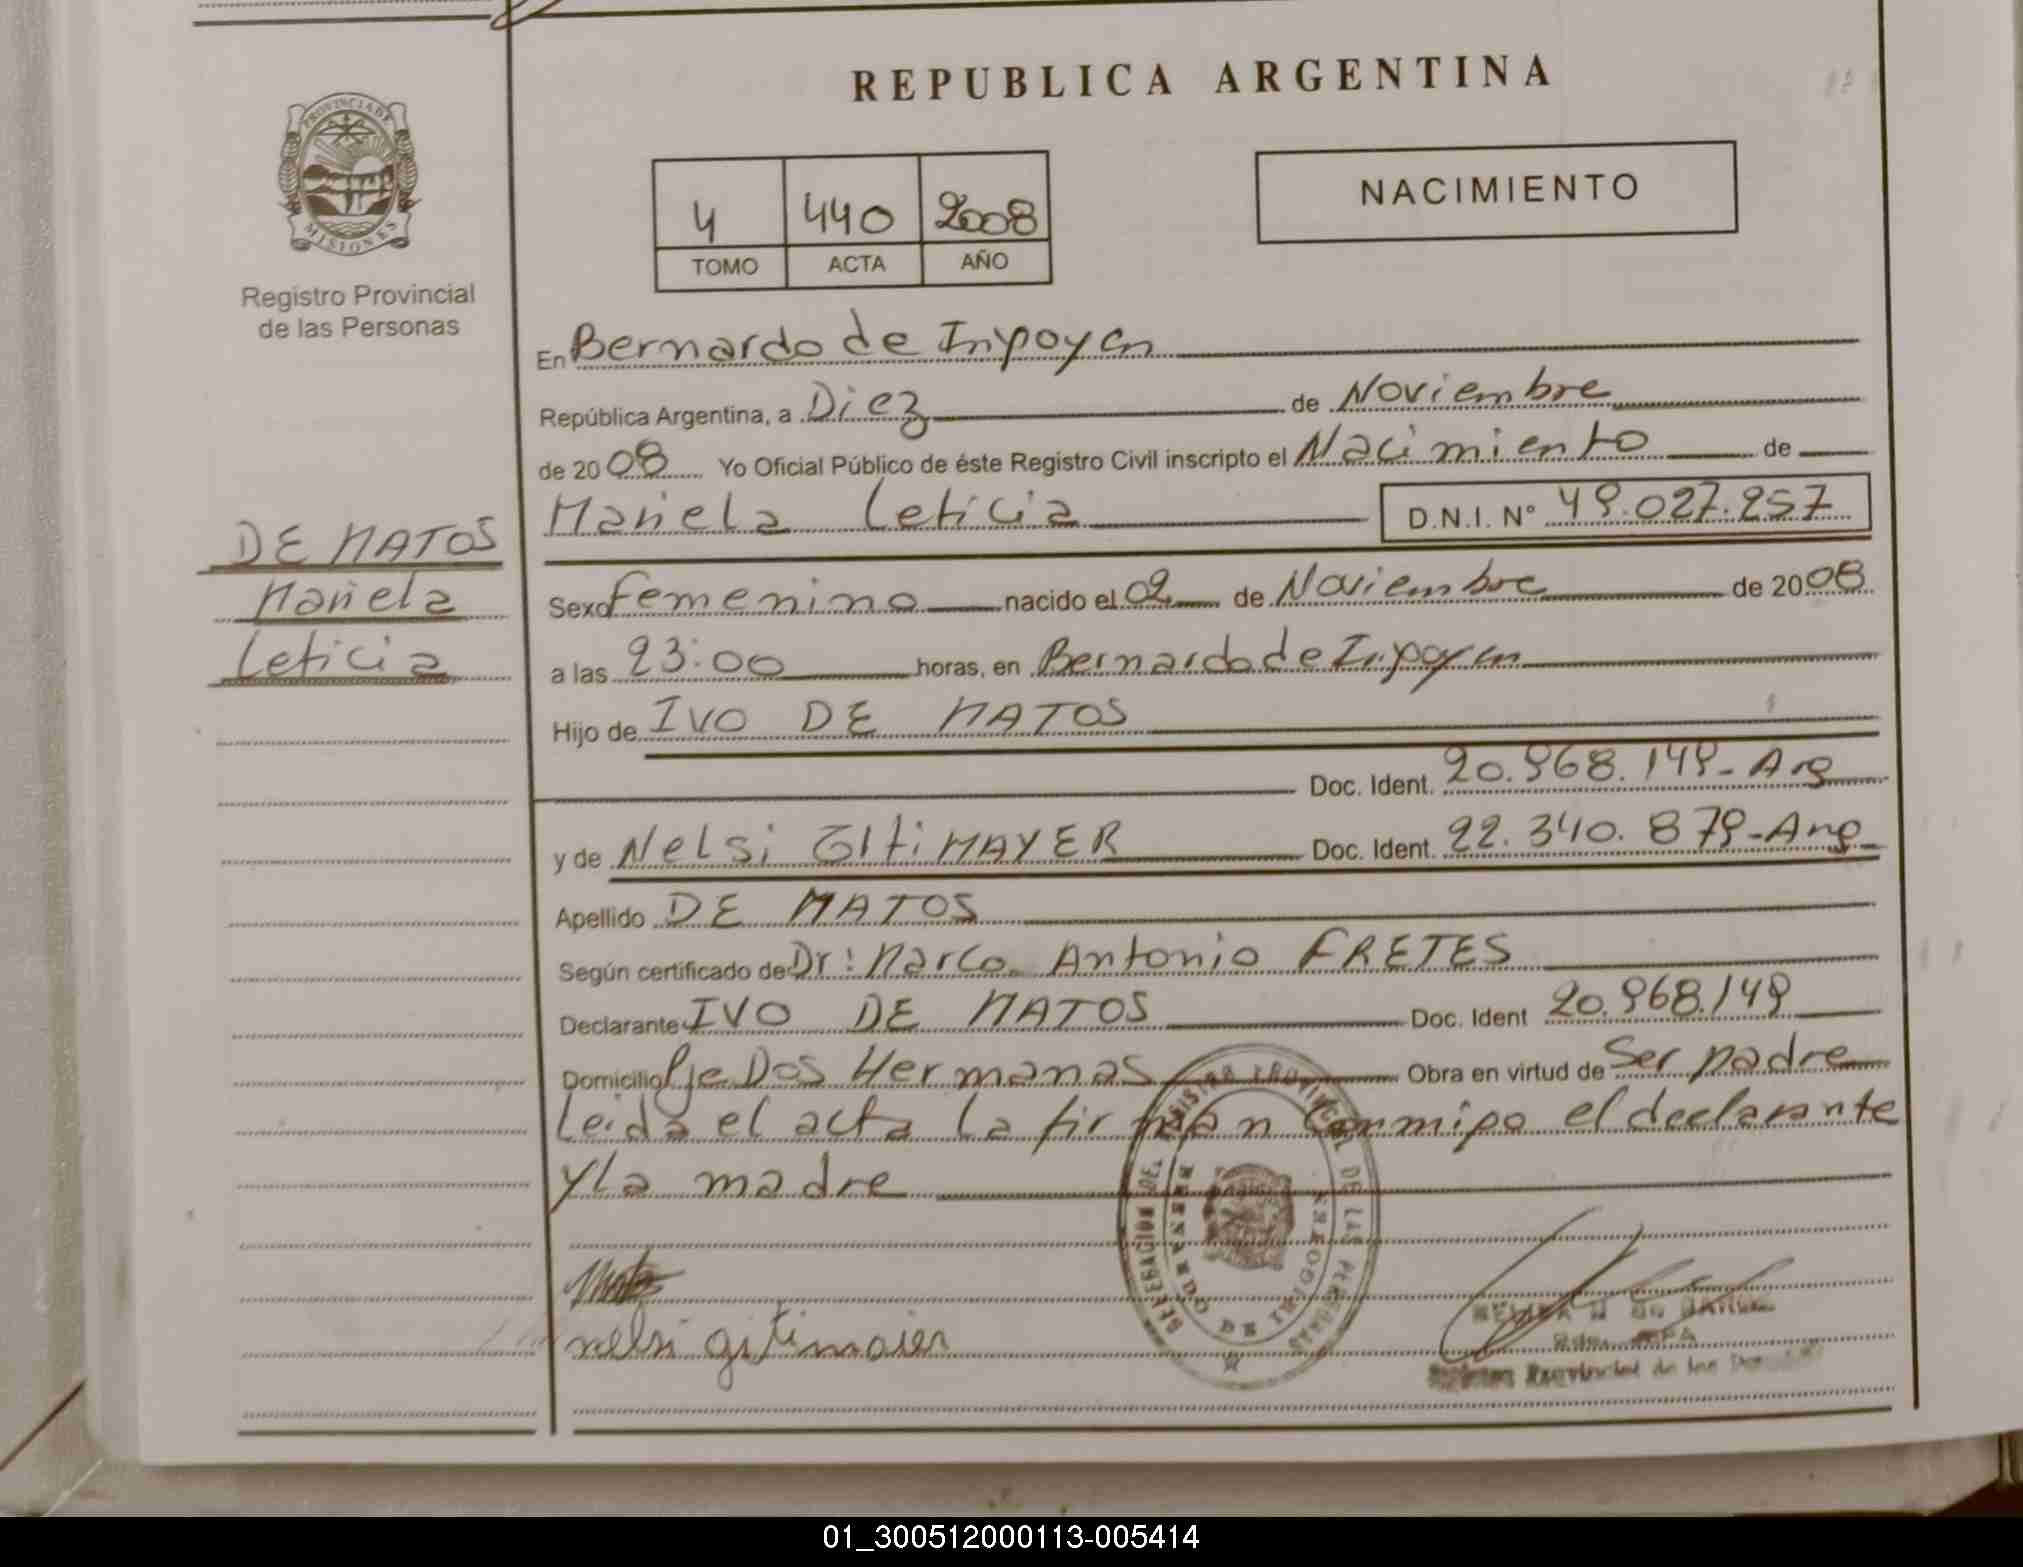 REPUBLICA ARGENTINA
PROVINCIA DE MISIONES
Registro Provincial
de las Personas
NACIMIENTO
4 440 2008
TOMO ACTA AÑO
En Bernardo de Irigoyen
República Argentina, a Diez de Noviembre
de 2008 Yo Oficial Público de éste Registro Civil inscripto el Nacimiento de
Mariela Leticia D.N.I. Nº 49.027.257
DE MATOS
Mariela
Leticia
Sexo Femenino nacido el 02 de Noviembre de 2008
a las 23:00 horas, en Bernardo de Irigoyen
Hijo de IVO DE MATOS
Doc. Ident. 20.968.149-Arg
y de Nelsi GItiMAYER Doc. Ident. 22.340.879-Arg
Apellido DE MATOS
Según certificado de Dr: Marco Antonio FRETES
Declarante IVO DE MATOS Doc. Ident 20.968.149
Domicilio Pje Dos Hermanas Obra en virtud de Ser padre
Leida el acta la firman conmigo el declarante
y La madre
DELEGACION DEL REGISTRO PROVINCIAL DE LAS PERSONAS
BERNARDO DE IRIGOYEN
nelsi gitimaier
Provincial de las
01_300512000113-005414